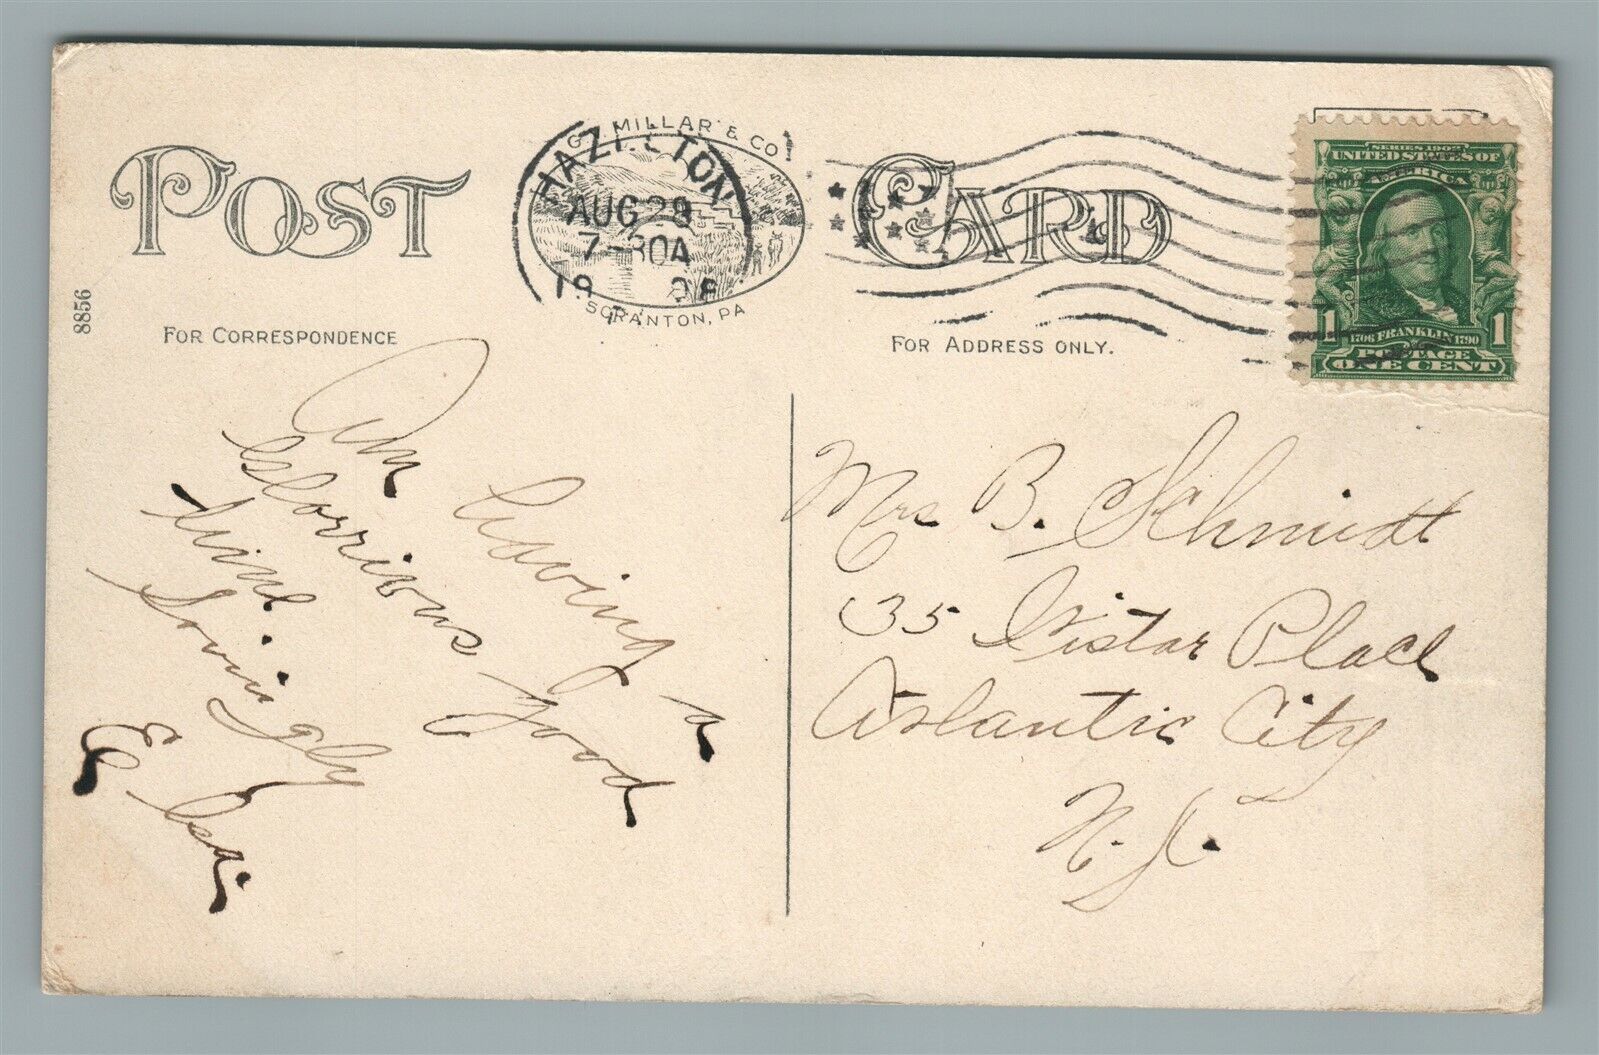 POST CARD
G. MILLAR & CO
SCRANTON, PA
HAZLETON
AUG 28
7-30A
1908
SERIES 1902
UNITED STATES OF
AMERICA
1 1706 FRANKLIN 1790 1
POSTAGE
ONE CENT
8856
FOR CORRESPONDENCE
FOR ADDRESS ONLY.
Am having a
Glorrious good
time
Lovingly
Elsa.
Mrs B. Schmidt
35 Wistar Place
Atlantic City
N.J.